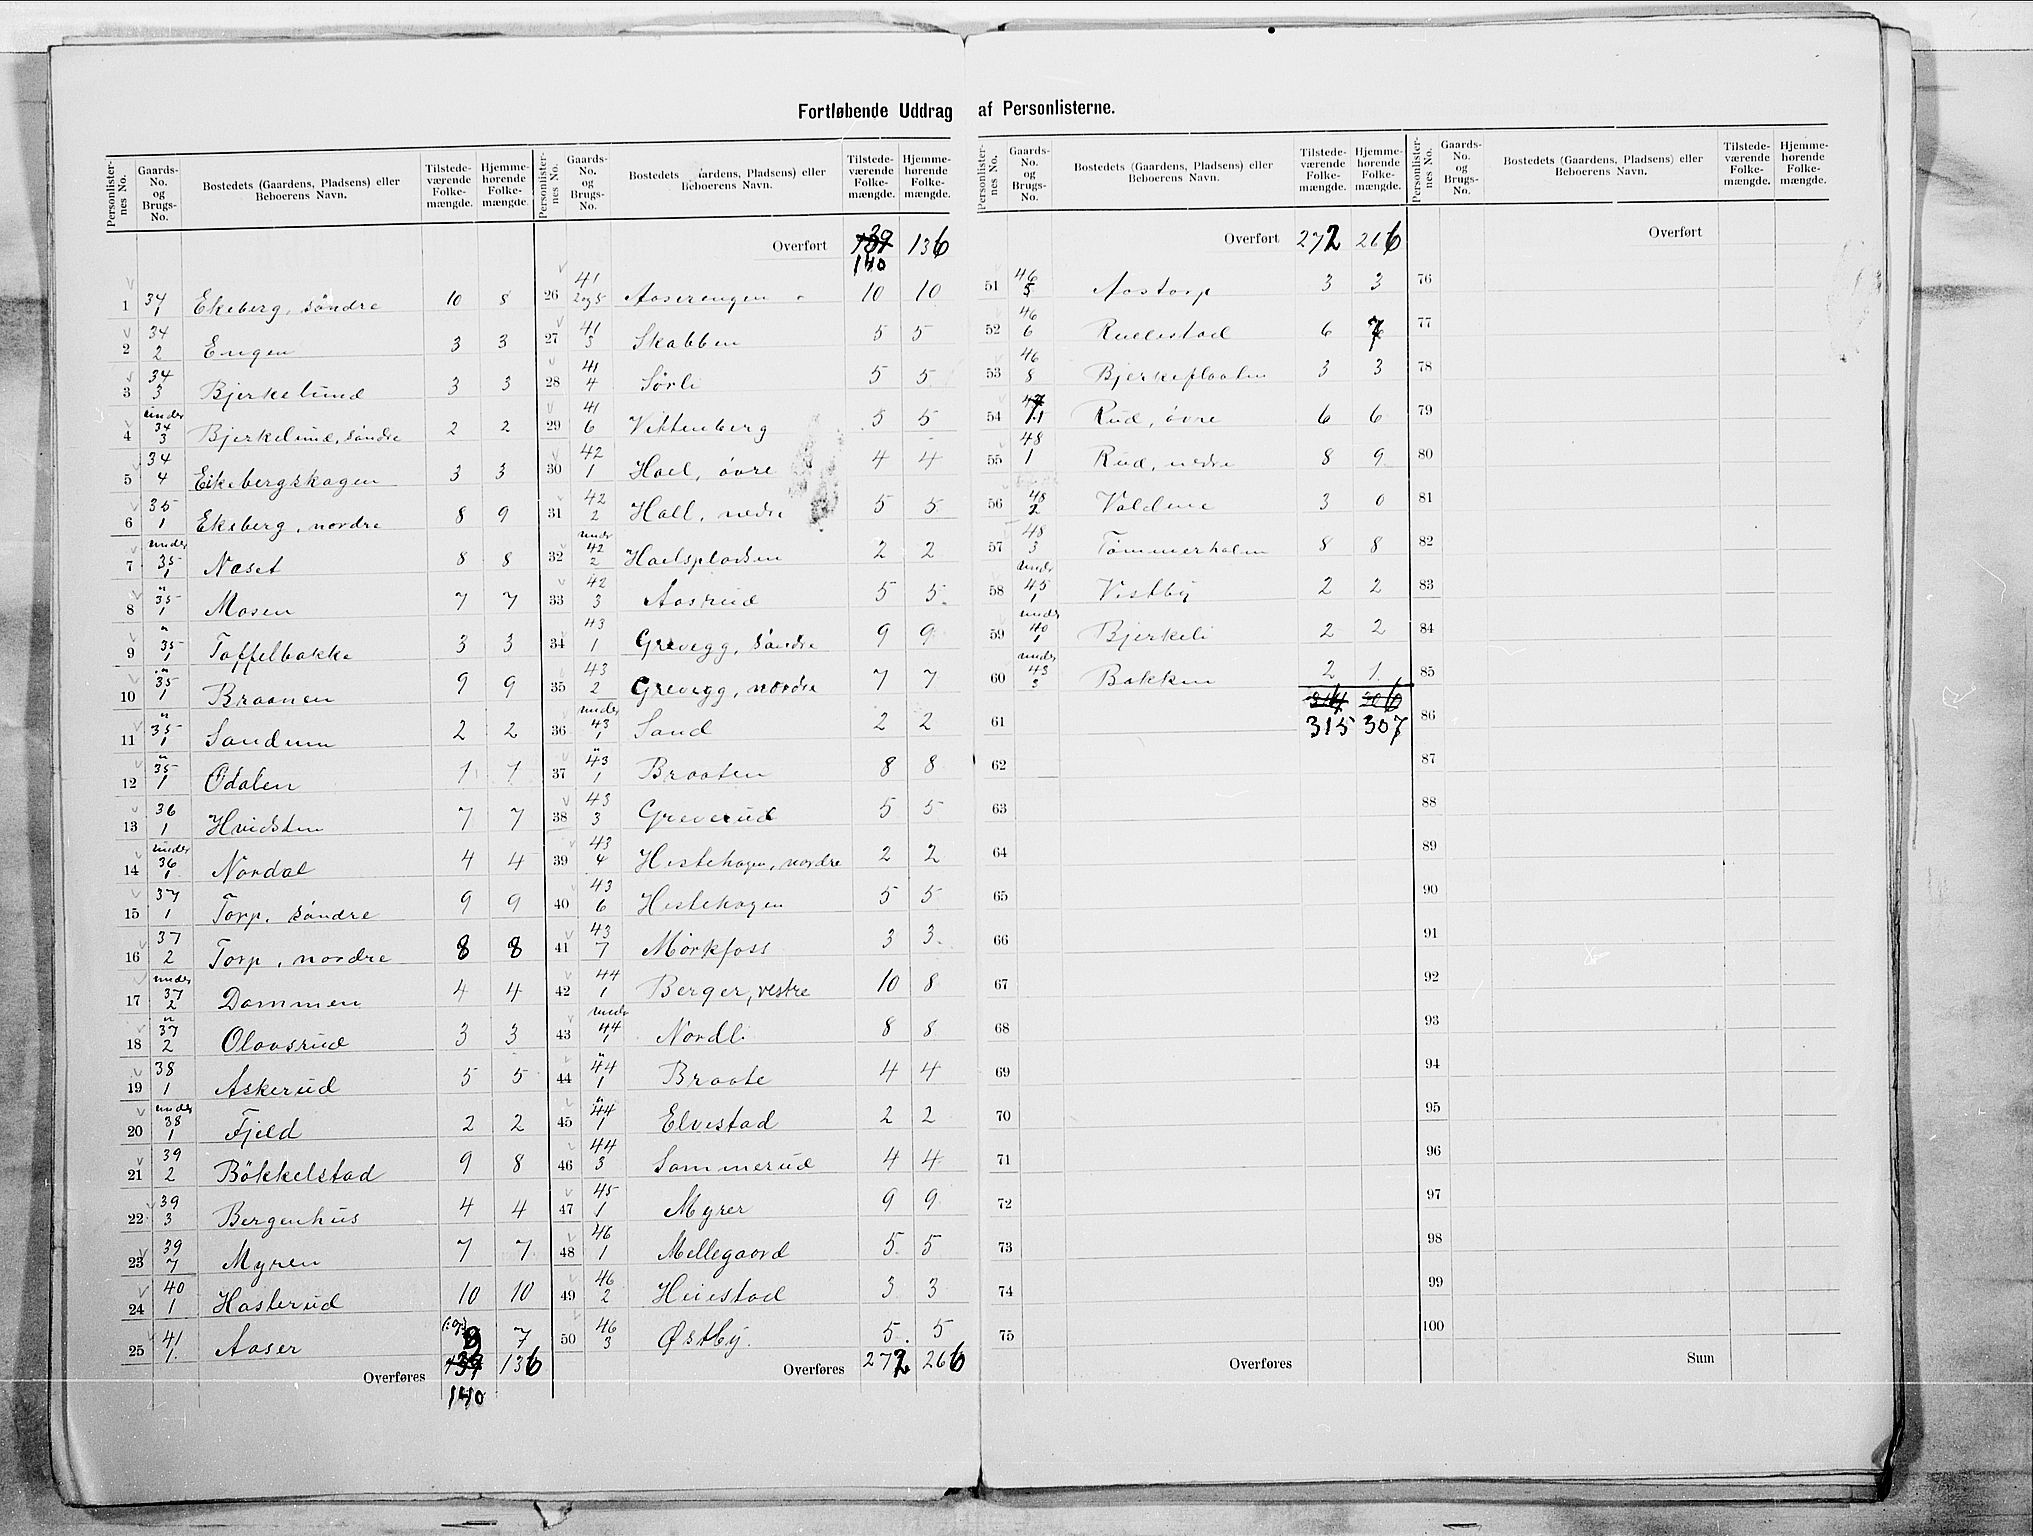 Fortløbende Uddrag af Personlisterne.
Personlisternes No. Gaards-No. og Brugs-No. Bostedets (Gaardens, Pladsens) eller Beboerens Navn. Tilstedeværende Folkemængde. Hjemmehørende Folkemængde.
1 34/1 Ekeberg, søndre 10 8
2 34/2 Engen 3 3
3 34/3 Bjerkelund 3 3
4 under 34/3 Bjerkelund, søndre 2 2
5 34/4 Eikebergskogen 3 3
6 35/1 Ekeberg, nordre 8 9
7 under 35/1 Næset 8 8
8 " 35/1 Mosen 7 7
9 " 35/1 Toffelbakke 3 3
10 " 35/1 Braanen 9 9
11 " 35/1 Sandum 2 2
12 " 35/1 Ødalen 1 1
13 36/1 Hvidsten 7 7
14 under 36/1 Nordal 4 4
15 37/1 Torp, søndre 9 9
16 37/2 Torp, nordre 8 8
17 under 37/2 Dammen 4 4
18 " 37/2 Olavsrud 3 3
19 38/1 Askerud 5 5
20 under 38/1 Fjeld 2 2
21 39/2 Bökkelstad 9 8
22 39/3 Bergenhus 4 4
23 39/7 Myren 7 7
24 40/1 Haslerud 10 10
25 41/1 Aaser 9 7
Overføres 140 136
Personlisternes No. Gaards-No. og Brugs-No. Bostedets (Gaardens, Pladsens) eller Beboerens Navn. Tilstedeværende Folkemængde. Hjemmehørende Folkemængde.
Overført 140 136
26 41/2 og 5 Aaserengen 10 10
27 41/3 Skabben 5 5
28 41/4 Sørli 5 5
29 41/6 Vittenberg 5 5
30 42/1 Hael, øvre 4 4
31 42/2 Hall, nedre 5 5
32 under 42/2 Haelspladsen 2 2
33 42/3 Aasrud 5 5
34 43/1 Grevegg, søndre 9 9
35 43/2 Grevegg, nordre 7 7
36 under 43/1 Sand 2 2
37 " 43/1 Braaten 8 8
38 43/3 Greverud 5 5
39 43/4 Hestehagen, nordre 2 2
40 43/6 Hestehagen 5 5
41 43/7 Mørkfoss 3 3
42 44/1 Berger, vestre 10 8
43 under 44/1 Nordli 8 8
44 " 44/1 Braate 4 4
45 " 44/1 Elvestad 2 2
46 44/3 Sommerud 4 4
47 45/1 Myrer 9 9
48 46/1 Mellegaard 5 5
49 46/2 Heiestad 3 3
50 46/3 Østby. 5 5
Overføres 272 266
Personlisternes No. Gaards-No. og Brugs-No. Bostedets (Gaardens, Pladsens) eller Beboerens Navn. Tilstedeværende Folkemængde. Hjemmehørende Folkemængde.
Overført 272 266
51 46/5 Aastorp 3 3
52 46/6 Rullestad 6 7
53 46/8 Bjerkeplaaten 3 3
54 Rud, øvre 6 6
55 48/1 Rud, nedre 8 9
56 48/2 Voldene 3 0
57 48/3 Tømmerholm 8 8
58 under 45/1 Vestby 2 2
59 under 40/1 Bjerkeli 2 2
60 under 43/3 Bakken 2 1
61 315 307
62
63
64
65
66
67
68
69
70
71
72
73
74
75
Overføres
Personlisternes No. Gaards-No. og Brugs-No. Bostedets (Gaardens, Pladsens) eller Beboerens Navn. Tilstedeværende Folkemængde. Hjemmehørende Folkemængde.
Overført
76
77
78
79
80
81
82
83
84
85
86
87
88
89
90
91
92
93
94
95
96
97
98
99
100
Sum